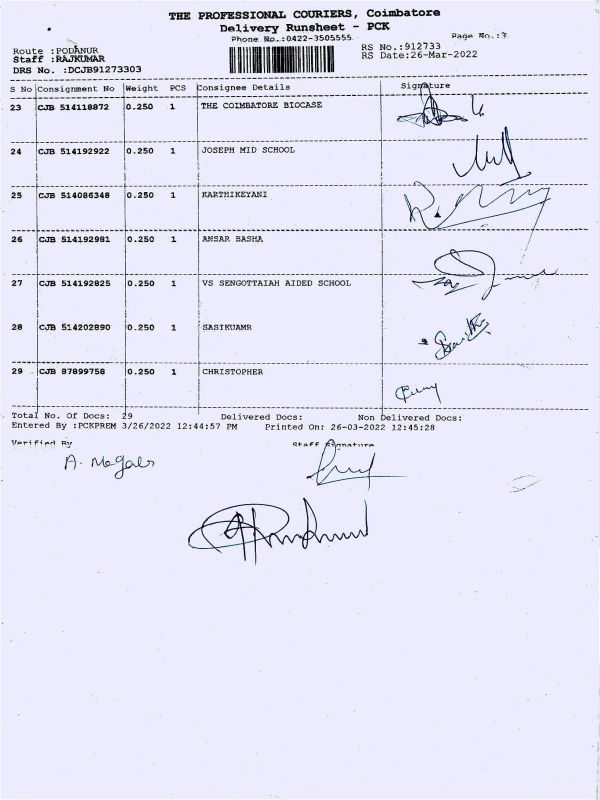 THE PROFESSIONAL COURIERS, Coimbatore
Delivery Runsheet - PCK
Phone No.:0422-3505555
Page No.:3
Route :PODANUR
RS No.:912733
Staff :RAJKUMAR
RS Date:26-Mar-2022
DRS No. :DCJB91273303
S No Consignment No Weight PCS Consignee Details Signature
23 CJB 514118872 0.250 1 THE COIMBATORE BIOCASE
24 CJB 514192922 0.250 1 JOSEPH MID SCHOOL
25 CJB 514086348 0.250 1 KARTHIKEYANI
26 CJB 514192981 0.250 1 ANSAR BASHA
27 CJB 514192825 0.250 1 VS SENGOTTAIAH AIDED SCHOOL
28 CJB 514202890 0.250 1 SASIKUAMR
29 CJB 87899758 0.250 1 CHRISTOPHER
Total No. Of Docs: 29 Delivered Docs: Non Delivered Docs:
Entered By :PCKPREM 3/26/2022 12:44:57 PM Printed On: 26-03-2022 12:45:28
Verified By Staff Signature